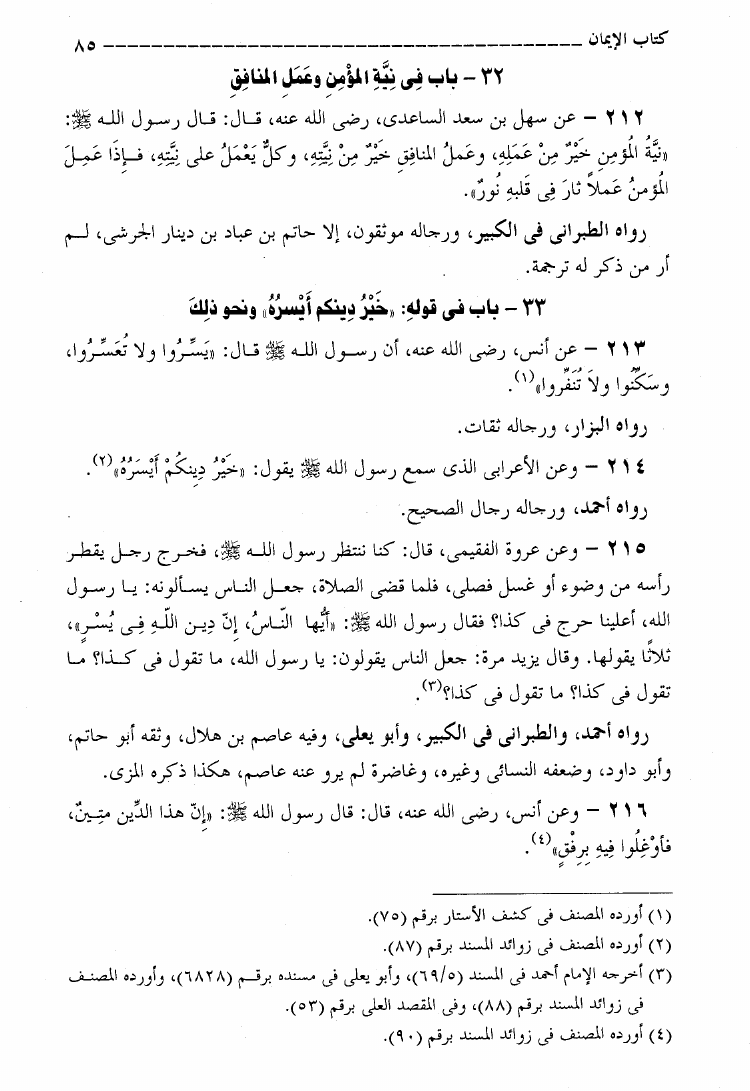 كتاب الإيمان ــــــــــــــــــــــــــــــــــــــــــــــــــــ ٨٥
٣٢ – باب فى نِيَّةِ المؤْمِنِ وعَمَلِ المنافِقِ
٢١٢ – عن سهل بن سعد الساعدى، رضى الله عنه، قال: قال رسول الله ﷺ:
«نِيَّةُ المُؤمِنِ خَيْرٌ مِنْ عَمَلِهِ، وعَملُ المنافِقِ خَيْرٌ مِنْ نِيَّتِهِ، وكلٌّ يَعْمَلُ على نِيَّتِهِ، فإذَا عَمِلَ
المُؤمنُ عَملاً ثارَ فِى قَلبِهِ نُورٌ».
رواه الطبرانى فى الكبير، ورجاله موثقون، إلا حاتم بن عباد بن دينار الجرشى، لم
أر من ذكر له ترجمة.
٣٣ – باب فى قولِهِ: «خَيْرُ دِينكم أيْسرُهُ» ونحو ذلِكَ
٢١٣ – عن أنس، رضى الله عنه، أن رسول الله ﷺ قال: «يَسِّرُوا ولا تُعَسِّرُوا،
وسَكِّنُوا ولاَ تُنَفِّروا»(١).
رواه البزار، ورجاله ثقات.
٢١٤ – وعن الأعرابى الذى سمع رسول الله ﷺ يقول: «خَيْرُ دِينِكُمْ أَيْسَرُهُ»(٢).
رواه أحمد، ورجاله رجال الصحيح.
٢١٥ – وعن عروة الفقيمى، قال: كنا ننتظر رسول الله ﷺ، فخرج رجل يقطر
رأسه من وضوء أو غسل فصلى، فلما قضى الصلاة، جعل الناس يسألونه: يا رسول
الله، أعلينا حرج فى كذا؟ فقال رسول الله ﷺ: «أَيُّها النَّاسُ، إِنّ دِينَ اللّهِ فِى يُسْرٍ»،
ثلاثًا يقولها. وقال يزيد مرة: جعل الناس يقولون: يا رسول الله، ما تقول فى كذا؟ ما
تقول فى كذا؟ ما تقول فى كذا؟(٣).
رواه أحمد، والطبرانى فى الكبير، وأبو يعلى، وفيه عاصم بن هلال، وثقه أبو حاتم،
وأبو داود، وضعفه النسائى وغيره، وغاضرة لم يرو عنه عاصم، هكذا ذكره المزى.
٢١٦ – وعن أنس، رضى الله عنه، قال: قال رسول الله ﷺ: «إِنّ هذا الدِّين متِينٌ،
فأوْغِلُوا فِيهِ بِرِفْقٍ»(٤).
(١) أورده المصنف فى كشف الأستار برقم (٧٥).
(٢) أورده المصنف فى زوائد المسند برقم (٨٧).
(٣) أخرجه الإمام أحمد فى المسند (٦٩/٥)، وأبو يعلى فى مسنده برقم (٦٨٢٨)، وأورده المصنف
فى زوائد المسند برقم (٨٨)، وفى المقصد العلى برقم (٥٣).
(٤) أورده المصنف فى زوائد المسند برقم (٩٠).